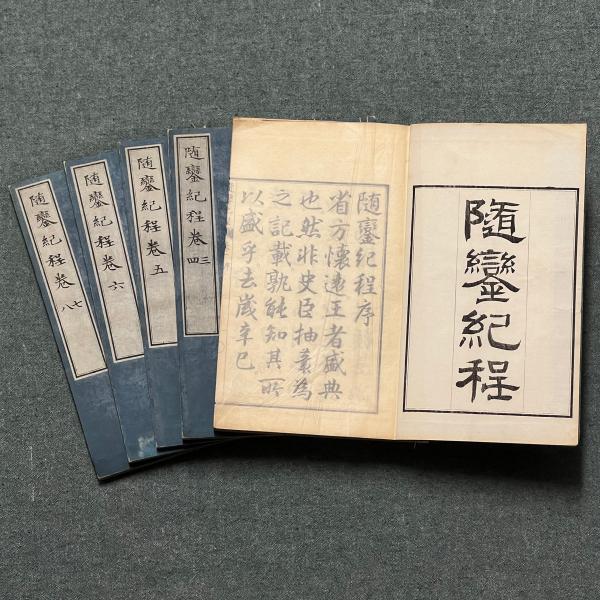 隨鑾紀程
隨鑾紀程序
省方懷遠王者盛典
也然非史臣抽豪為
之記載孰能知其所
以盛乎去歲辛巳
随鑾紀程卷三四
随鑾紀程卷五
随鑾紀程卷六
随鑾紀程卷七八